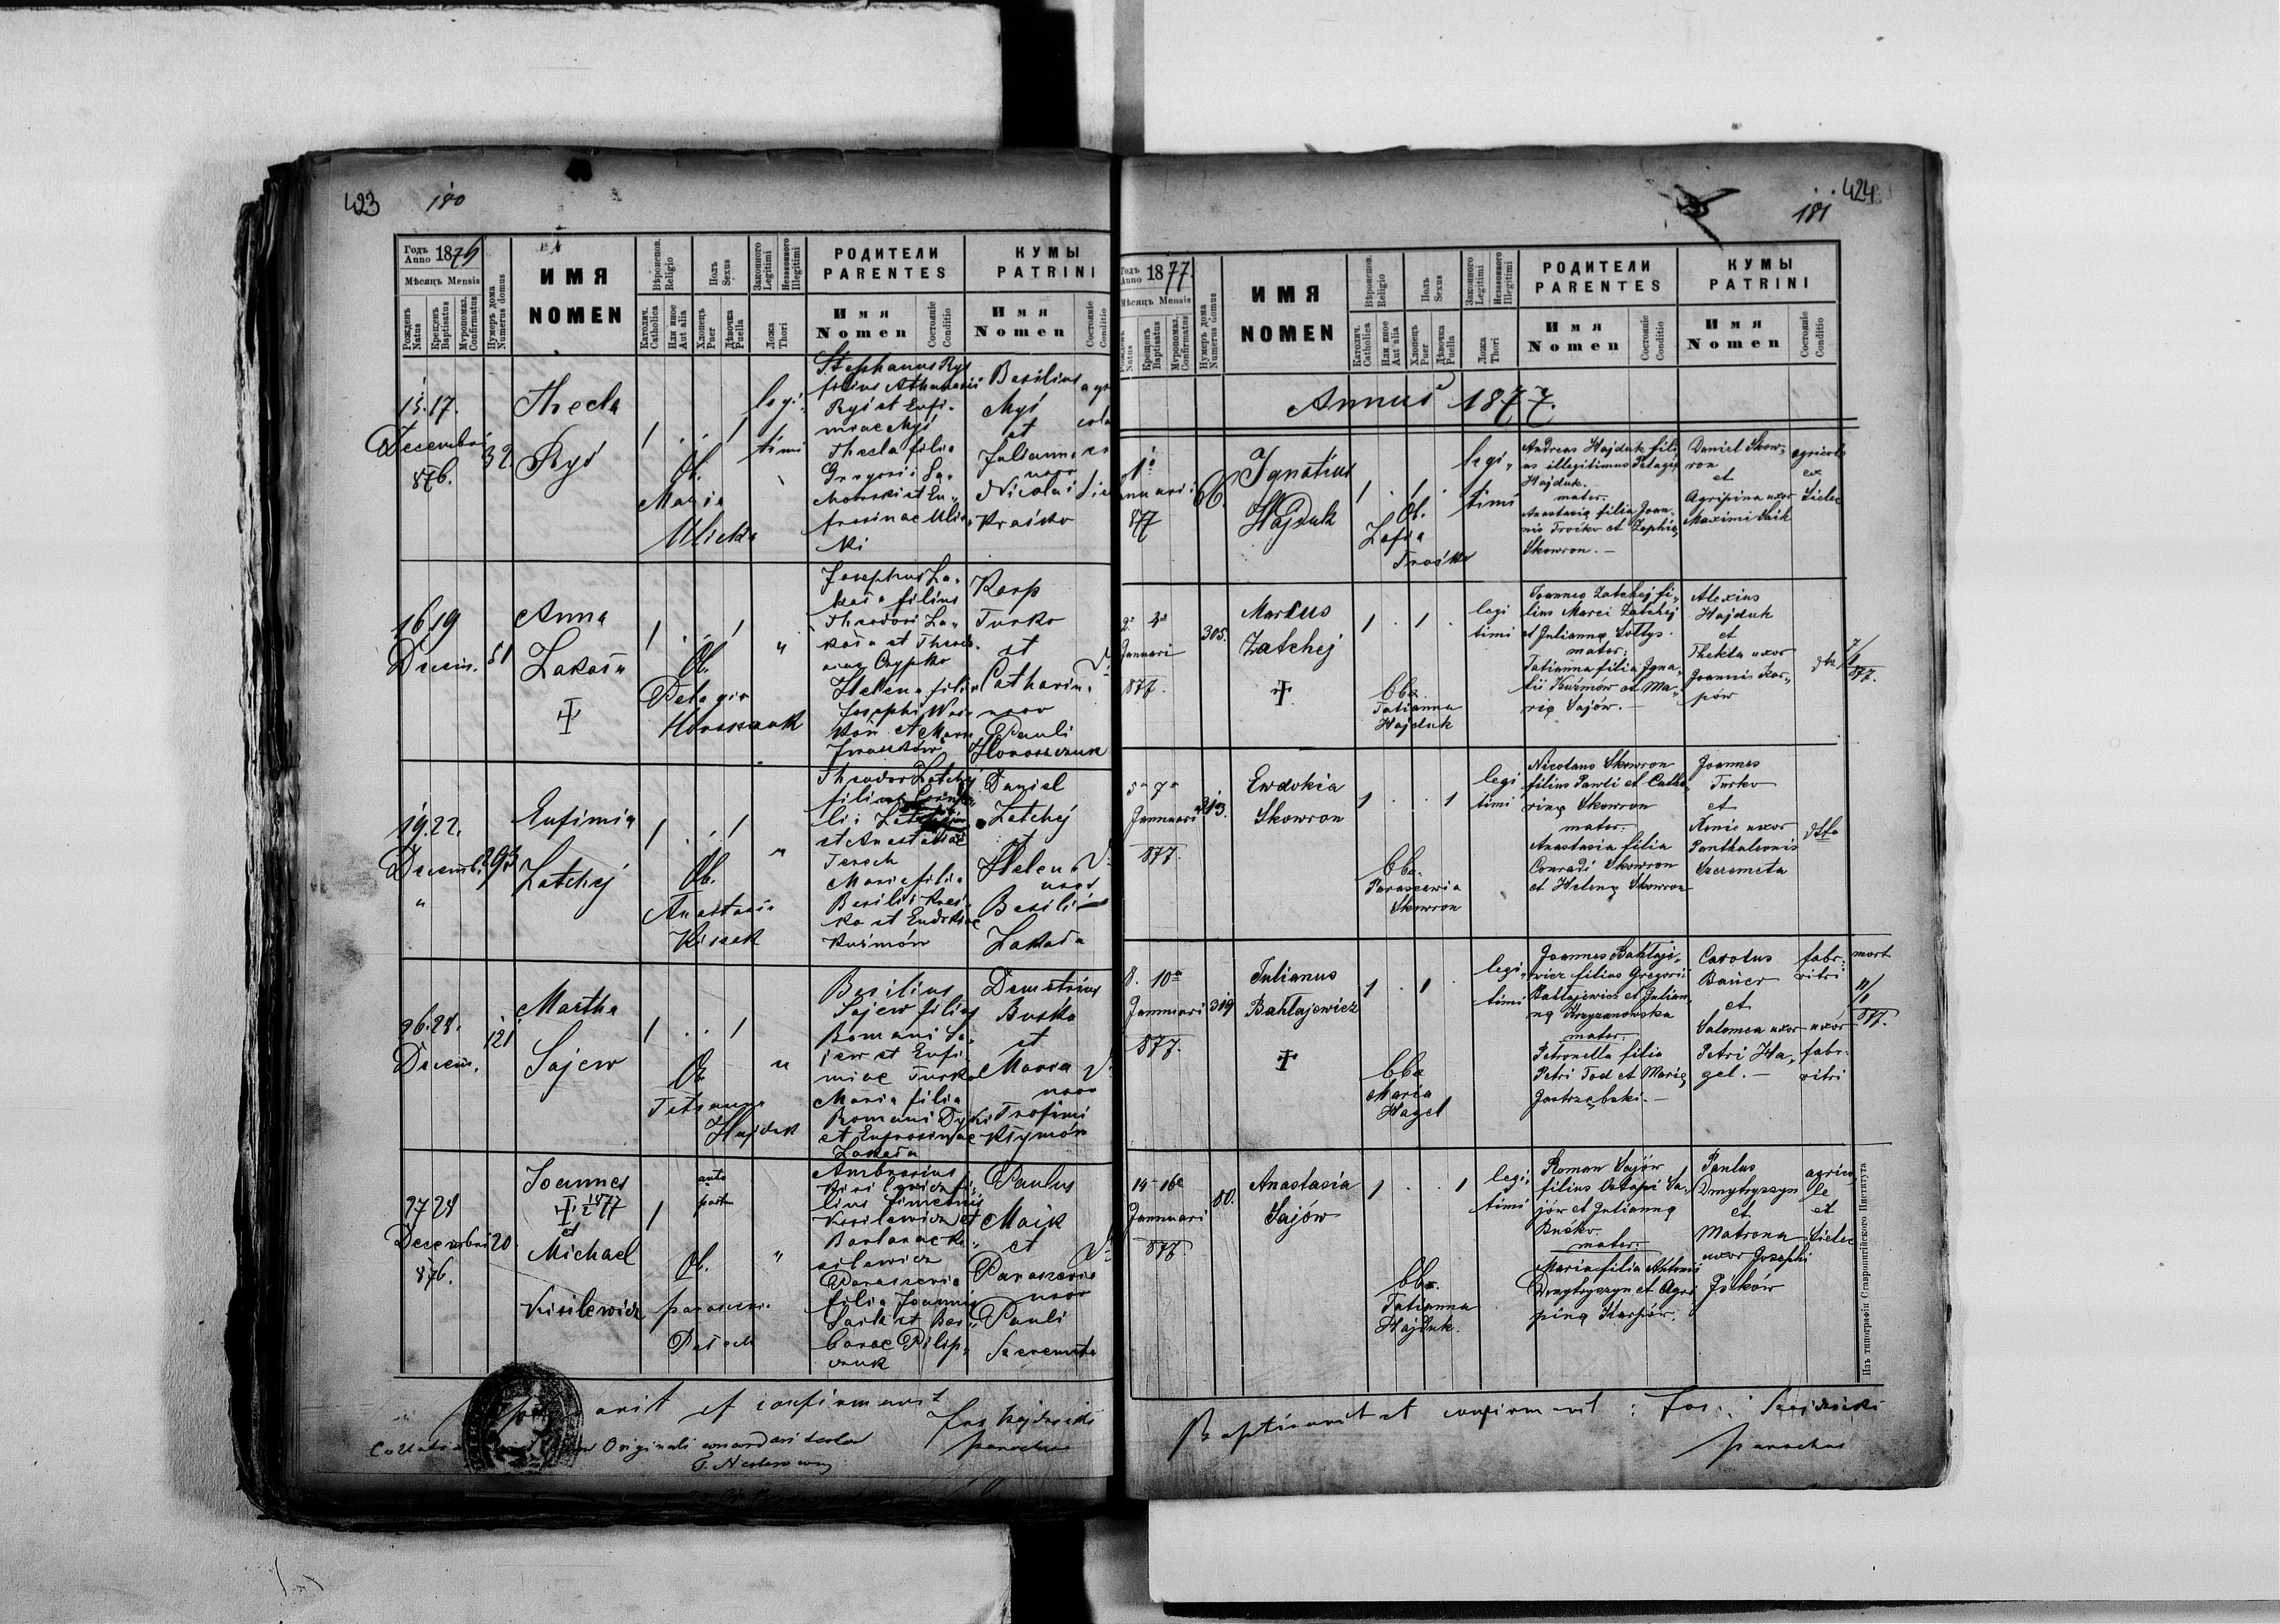 423
180
Годъ Anno 1876
Мѣсяцъ Mensis
Рожденъ Natus
Крещенъ Baptisatus
Муропомаз. Confirmatus
Нумеръ дома Numerus domus
ИМЯ
NOMEN
Вѣроиспов. Religio
Католич. Catholica
Или иное Aut alia
Полъ Sexus
Хлопецъ Puer
Дѣвочка Puella
Законного Legitimi
Незаконного Illegitimi
Ложа Thori
РОДИТЕЛИ
PARENTES
Имя
Nomen
Состояніе Conditio
КУМЫ
PATRINI
Имя
Nomen
Состояніе Conditio
15. 17.
Decembri
876.
32
Thecla
Ryś
1 . . 1
Ob.
Maria
Ulicka
legi-
timi
Stephanus Ryś
filius Athanasii
Ryś et Eufi-
miae Myś
Thecla filia
Gregorii
Nicolai
Basilius
Myś
et
Julianna
uxor
Kraśko
16 19
Decem.
51
Anna
Lakasa
1 . . 1
Ob.
Pelagia
Horoszczuk
"
Josephus La-
kasa filius
Theodori La-
kasa et Theodo-
Helena filia
Josephi
Karp
Turko
et
Catharina
uxor
Pauli
Horoszczuk
19. 22.
Decembr.
"
293
Eufimia
Zatchej
1 . . 1
Ob.
Anastasia
Kiszek
"
Theodor Zatchej
filius
et Anastasiae
Terech
Maria filia
Basilii
Kuźmów
Daniel
Zatchej
et
Helena
uxor
Basilii
Lakasa
26. 28.
Decem.
121
Martha
Sajew
1 . . 1
Ob.
Tatianna
Hajduk
"
Basilius
Sajew filius
Romani Sa-
jew et Eufi-
miae Turko
Maria filia
Romani Dyki
et Eufrosinae
Lakasa
Demetrius
Busko
et
Maria
uxor
Trofimi
Klymów
27 28
Decembri
876.
20
Joannes
1877
et
Michael
Kisilewicz
1
ante
partum
Ob.
Parascevia
"
Ambrosius
Kisilewicz fi-
lius Simeonis
Kisilewicz et
Barbarae Ki-
silewicz
Parascevia
filia Joannis
Saik et Bar-
barae Pilip-
czuk
Paulus
Maik
et
Parascevia
uxor
Pauli
Szeremeta
et confirmavit
parochus
Originali
424
181
Годъ Anno 1877.
Мѣсяцъ Mensis
Рожденъ Natus
Крещенъ Baptisatus
Муропомаз. Confirmatus
Нумеръ дома Numerus domus
ИМЯ
NOMEN
Вѣроиспов. Religio
Католич. Catholica
Или иное Aut alia
Полъ Sexus
Хлопецъ Puer
Дѣвочка Puella
Законного Legitimi
Незаконного Illegitimi
Ложа Thori
РОДИТЕЛИ
PARENTES
Имя
Nomen
Состояніе Conditio
КУМЫ
PATRINI
Имя
Nomen
Состояніе Conditio
Annus 1877.
1
nuari
877
66.
Ignatius
Hajduk
1 . 1 .
Ob.
Zofia
Trośko
legi-
timi
Andreas Hajduk fili-
us illegitimus Pelagię
Hajduk.
mater.
Anastasia filia Joan-
nis Trośko et Zophię
Skowron. —
Daniel Skow-
ron
et
Agripina uxor
Maximi Saik
agricole
ex
Sielec
2. 3a
Januari
877.
305.
Marcus
Zatchej
1 . 1 .
bba.
Tatianna
Hajduk
legi
timi
Joannes Zatchej fi-
lius Marci Zatchej
et Julianną Sołtys.
mater:
Tatianna filia Igna-
tii Kuźmów et Ma-
rię Sajów. —
Alexius
Hajduk
et
Thekla uxor
Joannis Kar-
pów
dto
7/1
877.
5a 7a
Januari
877.
213.
Ewdokia
Skowron
1 . . 1
bba.
Parascewia
Skowron
legi
timi
Nicolaus Skowron
filius Pawli et Catha-
riną Skowron
mater:
Anastasia filia
Conradi Skowron
et Heleną Skowron
Joannes
Turko
et
Xenia uxor
Panthaleonis
Szeremeta
dtto
8. 10a
Januari
877.
319
Julianus
Bahlajewicz
1 . 1
bba
Maria
Hagel
legi-
timi
Joannes Bahlaje-
wicz filius Gregorii
Bahlajewicz et Julian-
ną Krzyzanowska
mater:
Petronella filia
Petri Tod et Marię
Jastrzębski. —
Carolus
Bauer
et
Salomea uxor
Petri Ha-
gel. —
fabr:
vitri
uxor
fabr:
vitri
mort
11/1
877.
14 - 16a
Januari
877.
80.
Anastasia
Sajów
1 . . 1
bba.
Tatianna
Hajduk.
legi-
timi
Roman Sajów
filius Ostapi Sa-
jów et Julianną
Buśko.
mater:
Maria filia Antoni
Dmytryszyn et Agri-
piną Karpów.
Paulus
Dmytryszyn
et
Matrona
uxor Josephi
Jśków
agrico-
le
et
Sielec
Baptisavit et confirmavit:
parochus
Изъ типографіи Ставропигійского Института